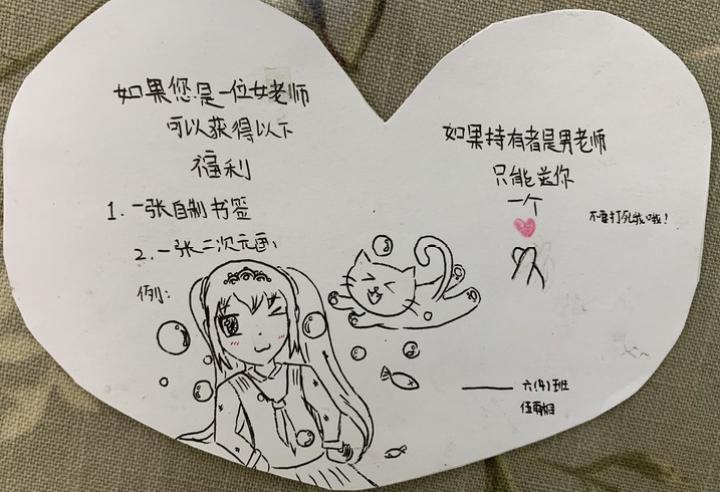 如果您是一位女老师
可以获得以下
福利
1. 一张自制书签
2. 一张二次元画
例:
如果持有者是男老师
只能送你
一个
不要打死我哦!
—— 六(4)班